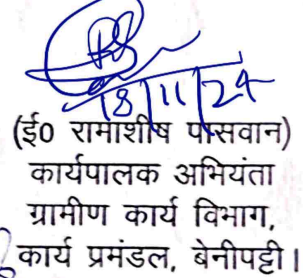 18/11/24
(ई० रामाशीष पासवान)
कार्यपालक अभियंता
ग्रामीण कार्य विभाग,
कार्य प्रमंडल, बेनीपट्टी।